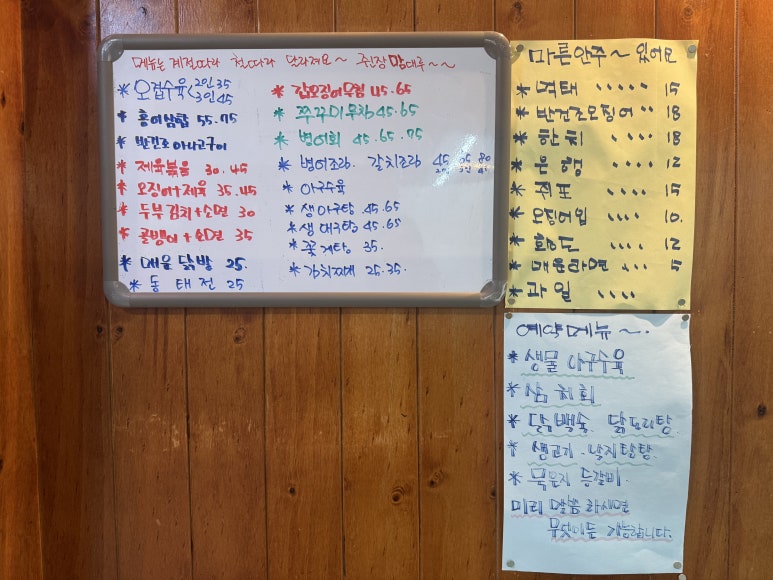 메뉴는 계절따라 철따라 달라져요~ 주인장 맘대루~~
* 오겹수육 < 2인 35
3인 45
* 홍어삼합 55.75
* 반건조 아나고구이
* 제육볶음 30.45
* 오징어+제육 35.45
* 두부김치+소면 30
* 골뱅이+소면 35
* 매운 닭발 25.
* 동태전 25
* 갑오징어무침 45.65
* 쭈꾸미무침 45.65
* 병어회 45.65.75
* 병어조림. 갈치조림 45 65 80
* 아구수육
* 생아구탕 45.65
* 생대구탕 45.65
* 꽃게탕 35.
* 김치찌개 25.35.
마른안주~ 있어요
* 먹태 ..... 15
* 반건조오징어 .. 18
* 한치 ..... 18
* 은행 .... 12
* 쥐포 .... 15
* 오징어입 .... 10.
* 황도 .... 12
* 매운라면 .... 5
* 과일 ....
예약메뉴~.
* 생물 아구수육
* 삼치회
* 닭백숙. 닭도리탕.
* 생고기. 낙지탕탕.
* 묵은지 등갈비.
미리 말씀 하시면
무엇이든 가능합니다.